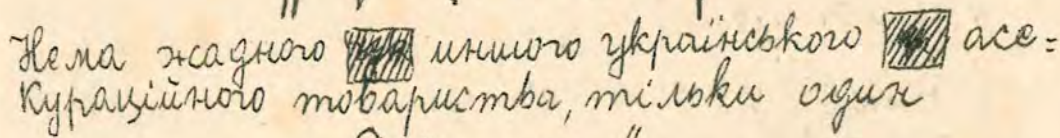 Нема жадного иншого українського асе=
кураційного товариства, тільки один